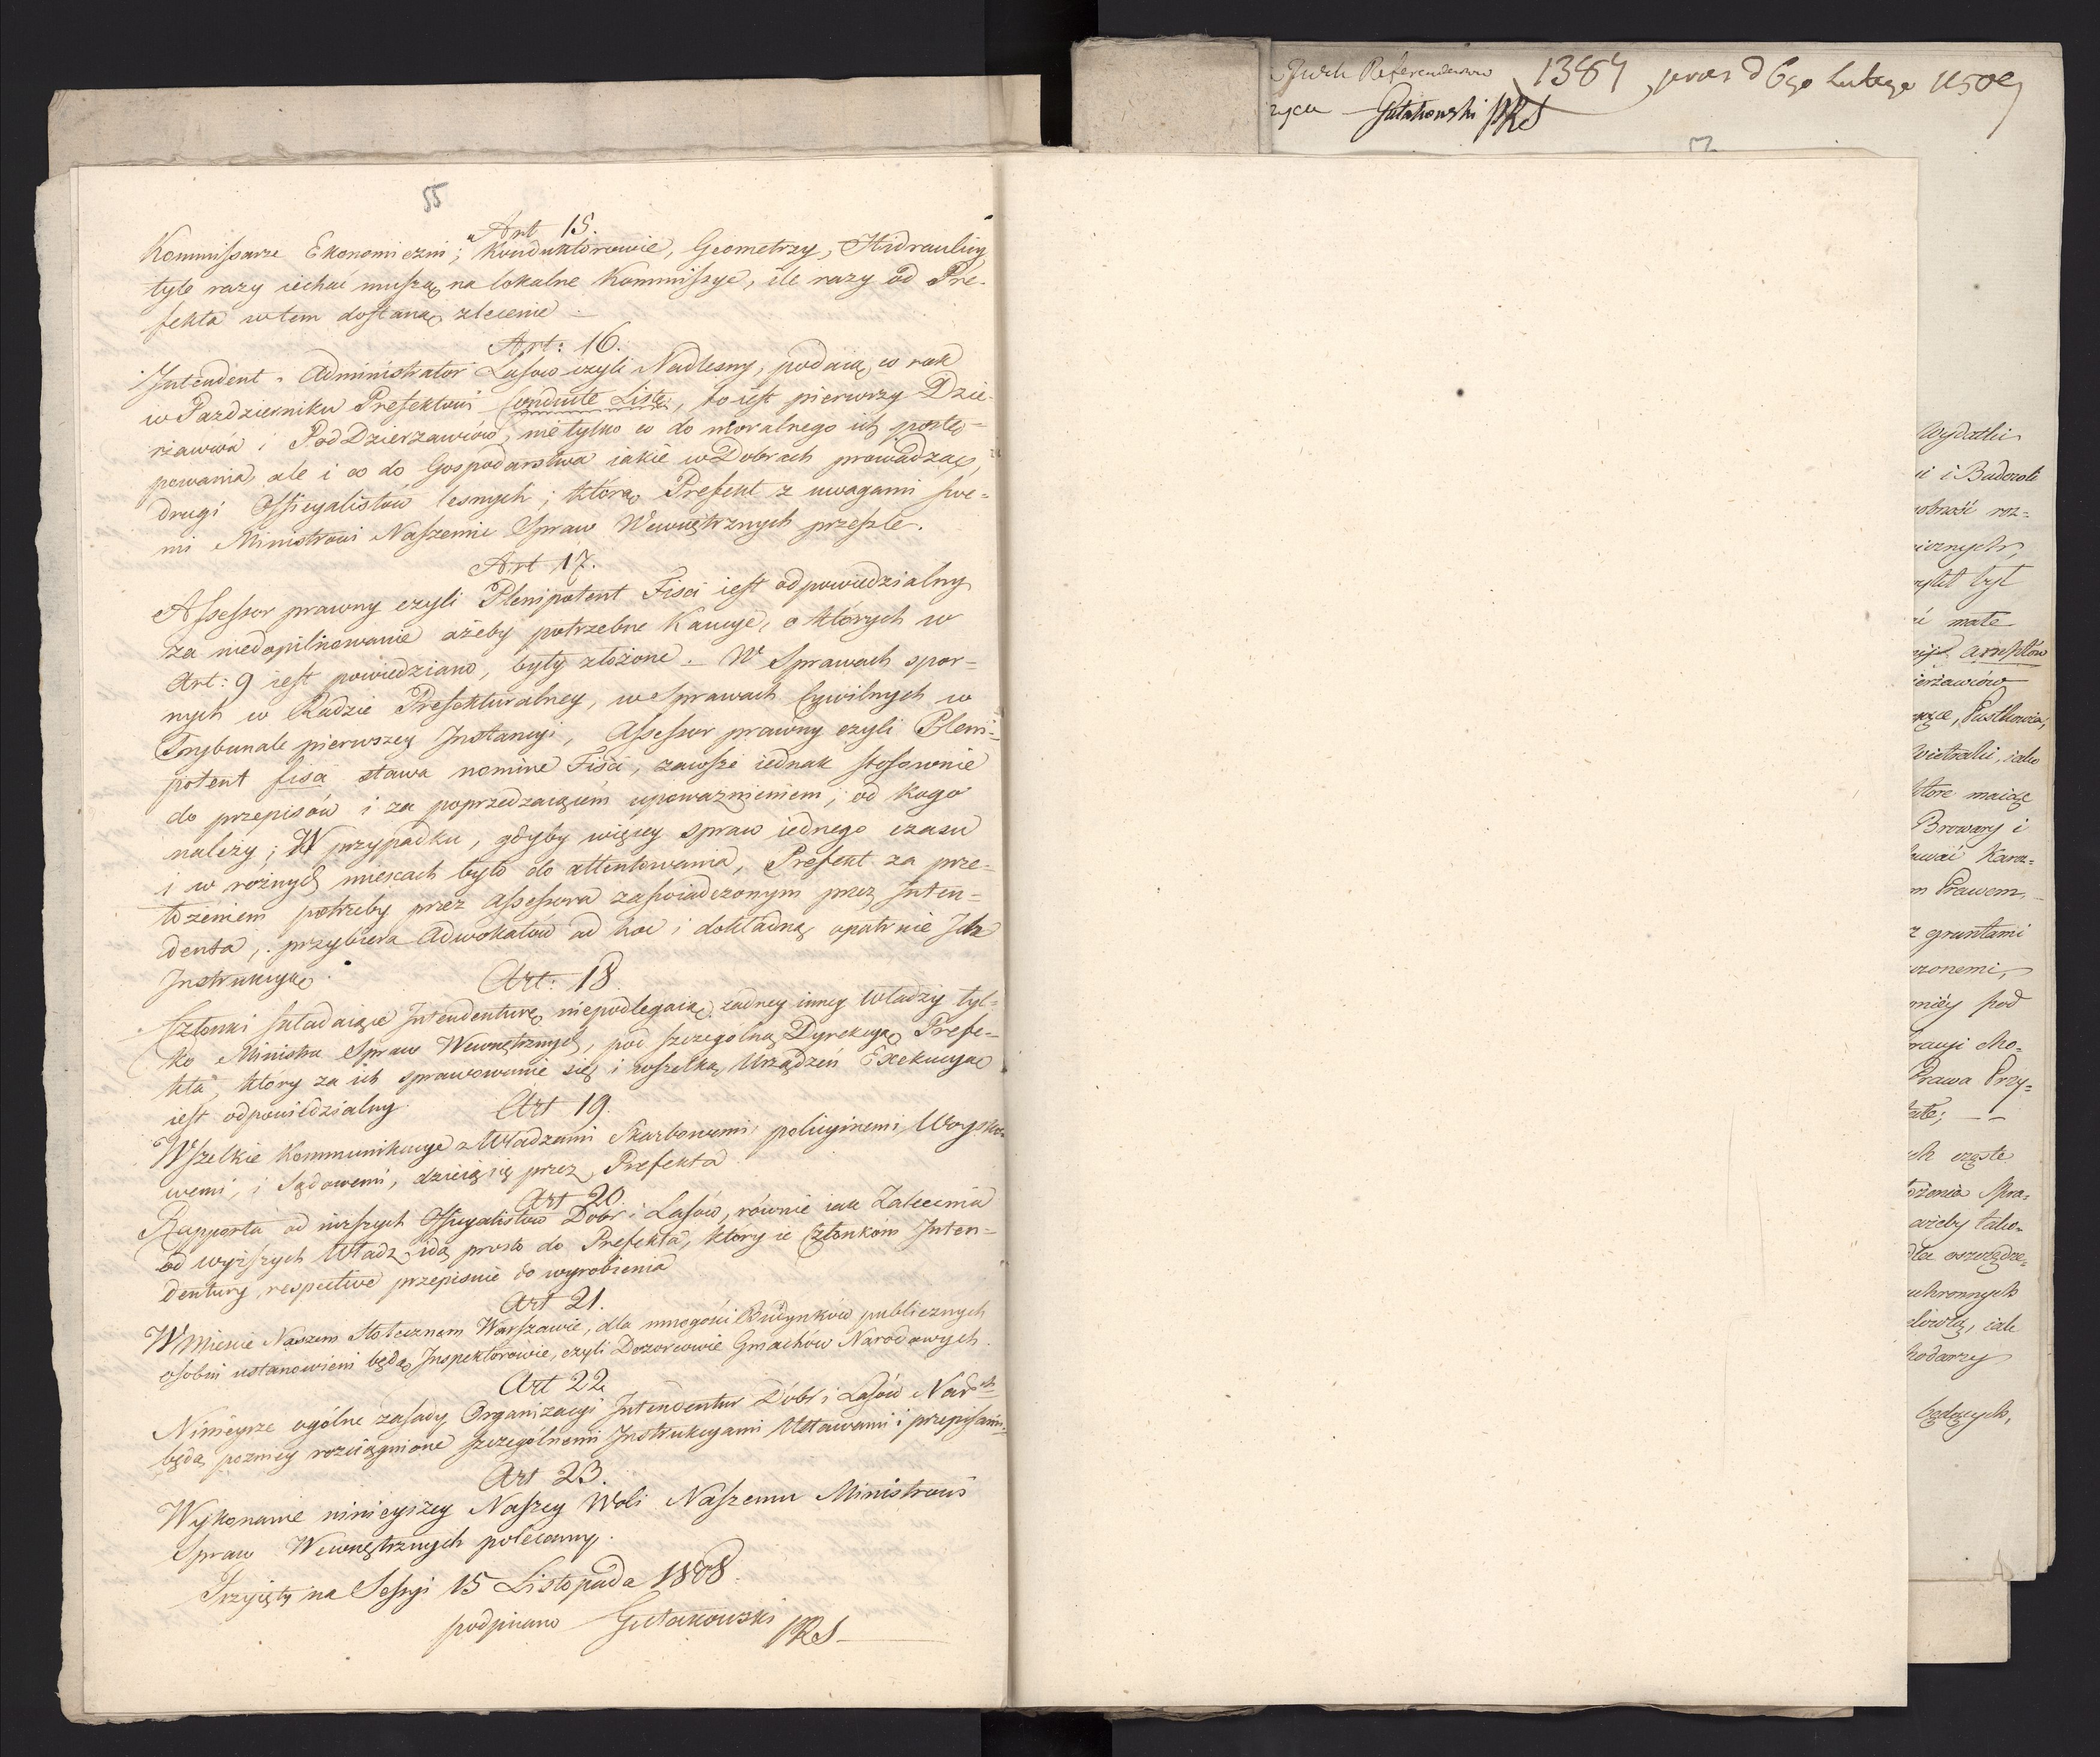 55
Art 15.
Kommissarze Ekonomiczni; Konduktorowie, Geometrzy, Hidraulicy
tyle razy iechać muszą na lokalne Kommissye, ile razy od Pre-
fekta wtem dostaną zlecenie
Art: 16.
Intendent, Administrator Lasow czyli Nadlesny, podaią co rok
w Pazdzierniku Prefektowi Conduite Listę, to iest pierwszy Dzie-
rzawców i PodDzierzawców, nie tylko co do moralnego ich postę-
powania, ale i co do Gospodarstwa iakie w Dobrach prowadzą,
drugi Officyalistów lesnych; którą Prefekt z uwagami swe-
mi Ministrowi Naszemu Spraw Wewnętrznych przeszle.
Art 17.
Assessor prawny czyli Plenipotent Fisci iest odpowiedzialny
za niedopilnowanie ażeby potrzebne Kaucye, o których w
Art: 9 iest powiedziano, były złożone. W Sprawach spor-
nych w Radzie Prefekturalney, w Sprawach Cywilnych w
Trybunale pierwszey Instancyi, Assessor prawny czyli Pleni-
potent fisci stawa nomine Fisci, zawsze iednak stosownie
do przepisów i za poprzedzaiącem upoważnieniem, od kogo
należy; W przypadku, gdyby więcey spraw iednego czasu
i w rożnych miescach było do attentowania, Prefekt za prze-
łożeniem potrzeby przez Assessora zaświadczonym przez Inten-
denta, przybiera Adwokatów ad hoc i dokładną opatrnie Ich
Instrukcyą.
Art: 18.
Członki składaiące Intendenturę niepodlegaią żadney inney władzy tyl-
ko Ministra Spraw Wewnętrznych, pod szczególną Dyrekcyą Prefe-
kta, który za ich sprawowanie się i wszelką Urządzeń Exekucyą
iest odpowiedzialny.
Art 19.
Wszelkie Kommunikacye z Władzami Skarbowemi, policyinemi, Woysko-
wemi, i Sądowemi, dzieią się przez Prefekta
Art 20.
Rapporta od niższych Officyalistów Dobr i Lasów, równie iak Zalecenia
od wyższych Władz idą prosto do Prefekta, który ie Członkóm Inten-
dentury respective przepisuie do wyrobienia
Art 21.
W Miescie Naszem Stołecznem Warszawie, dla mnogości Budynków publicznych
osobni ustanowieni będą Inspektorowie, czyli Dozorcowie Gmachów Narodowych.
Art 22.
Ninieysze ogólne zasady Organizacyi Intendentur Dóbr i Lasów Nar<sup>ch</sup>
będą pozniey rozciągnione szczególnemi Instrukcyami Ustawami i przepisami.
Art 23.
Wykonanie ninieyszey Naszey Woli Naszemu Ministrowi
Spraw Wewnętrznych polecamy.
Przyięty na Sessyi 15 Listopada 1808.
podpisano Gutakowski PRS
Referendarzow 1384 prces d 6go Lutego 1809
Gutakowski PRS
Wydatki
i Budowli
roz-
był
małe
Pustkowia,
Wiatraki, iako
które maią
Browary i
Prawem,
z gruntami
pod
Prawa Przy-
częste
Spra-
ażeby tako-
dla
iak
będących,